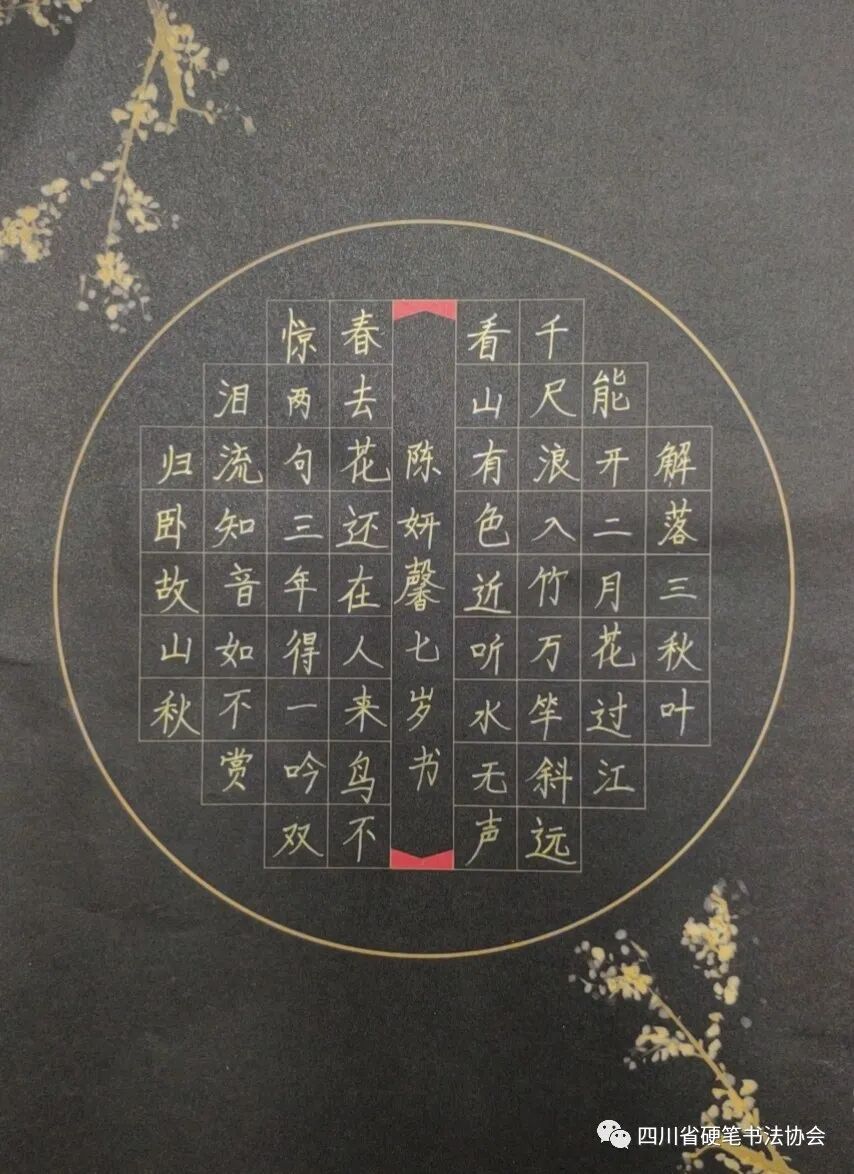 解落三秋叶
能开二月花过江
千尺浪入竹万竿斜远
看山有色近听水无声
陈妍馨七岁书
春去花还在人来鸟不
惊两句三年得一吟双
泪流知音如不赏
归卧故山秋
四川省硬笔书法协会